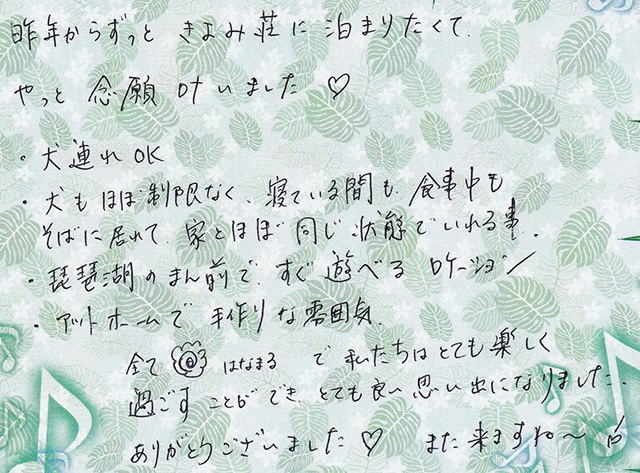 昨年からずっと きよみ荘に泊まりたくて、
やっと 念願 叶いました ♡
・犬連れOK
・犬もほぼ制限なく、寝ている間も、食事中も
そばに居れて、家とほぼ同じ状態でいれる事。
・琵琶湖のまん前で、すぐ遊べる ロケーション
・アットホームで 手作りな雰囲気。
全て はなまる で 私たちはとても楽しく
過ごすことができ、とても良い思い出になりました。
ありがとうございました ♡ また来ますね〜